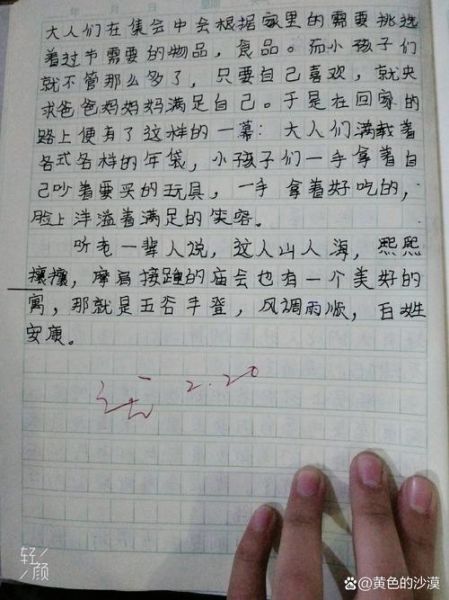 大人们在集会中会根据家里的需要挑选
着过节需要的物品，食品。而小孩子们
就不管那么多了，只要自己喜欢，就央
求爸爸妈妈妈满足自己。于是在回家的
路上便有了这样的一幕：大人们满载着
各式各样的年袋，小孩子们一手拿着自
己吵着要买的玩具，一手拿着好吃的，
脸上洋溢着满足的笑容。
听老一辈人说，这人山人海，熙熙
攘攘，摩肩接踵的庙会也有一个美好的
寓，那就是五谷手登，风调雨顺，百姓
安康。
2.20
轻颜
@黄色的沙漠